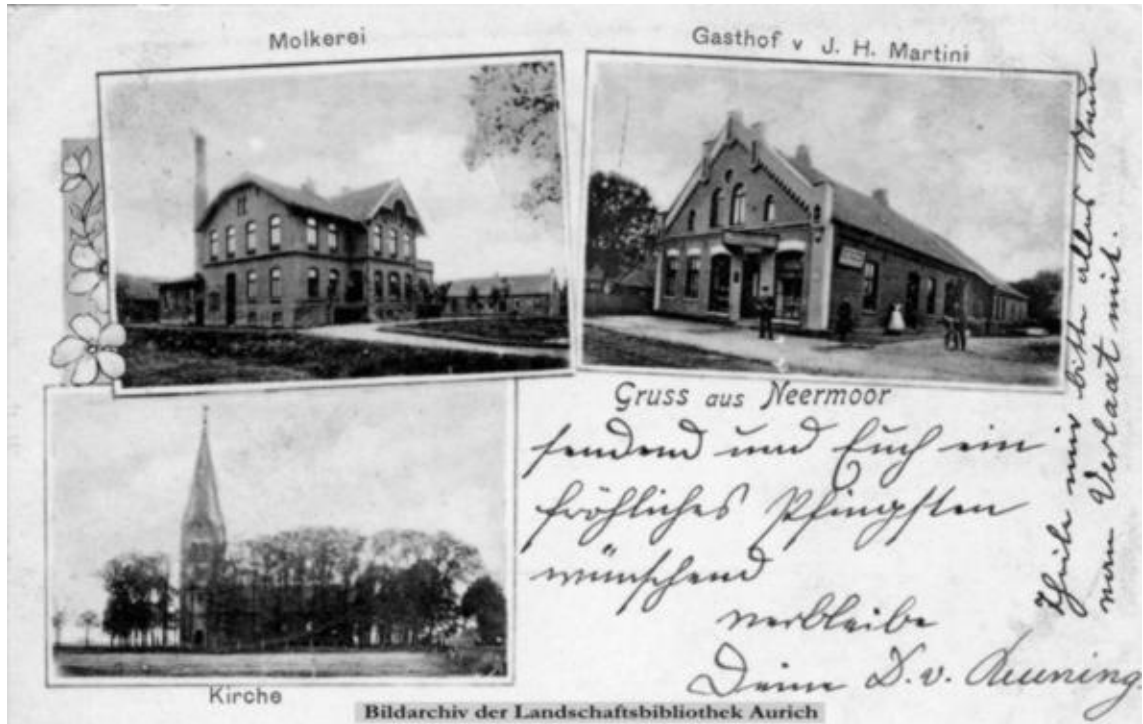 Molkerei
Gasthof v J. H. Martini
Gruss aus Neermoor
sendend und Euch ein
fröhliches Pfingsten
wünschend
verbleibe
Deine D. v.
Theile mir bitte alles
von Verlaat mit.
Kirche
Bildarchiv der Landschaftsbibliothek Aurich